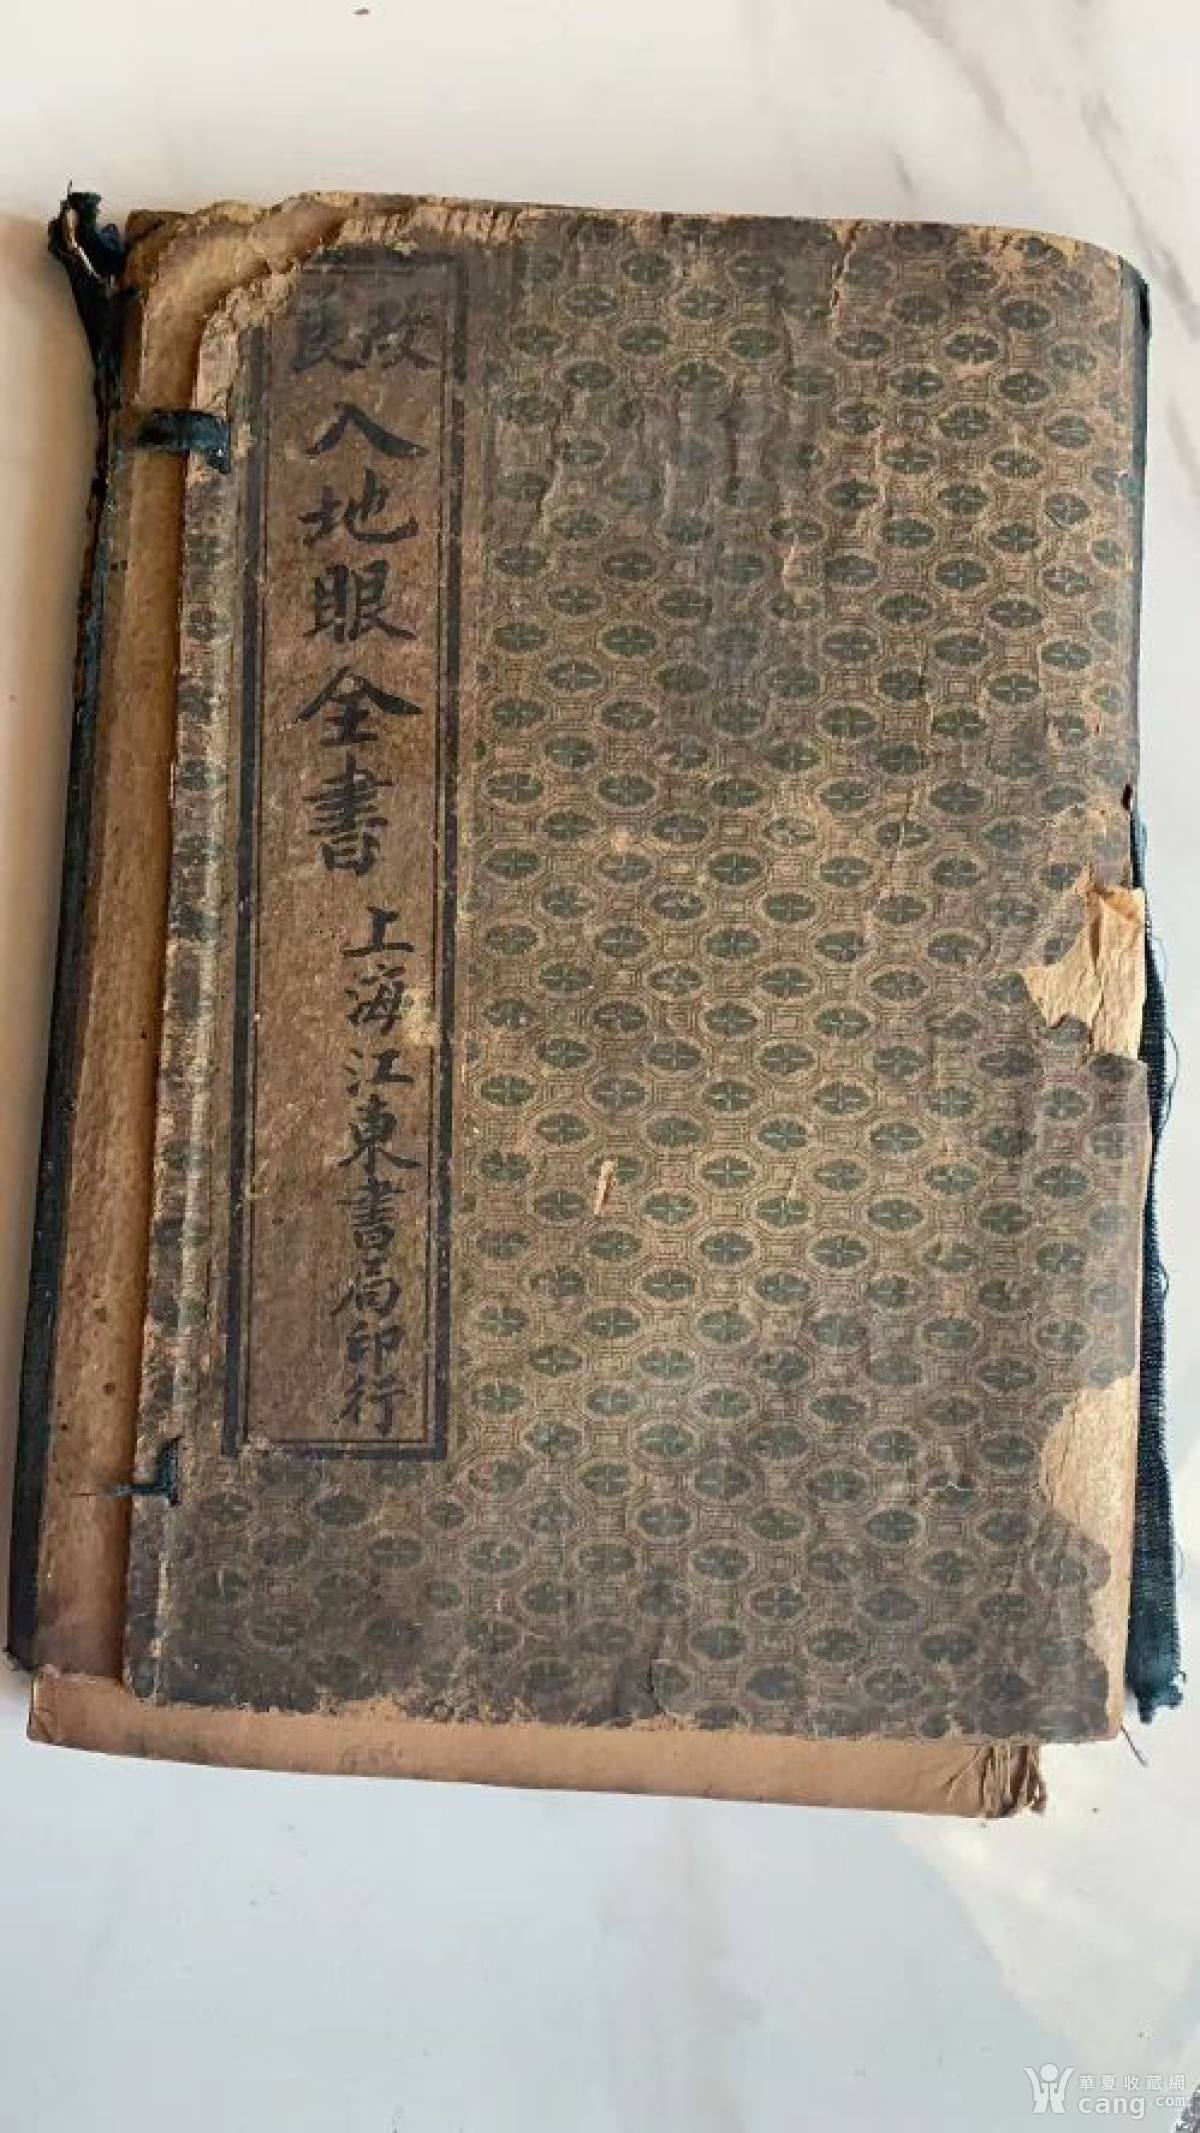 改良
入地眼全書
上海江東書局印行
華夏收藏網
cang.com